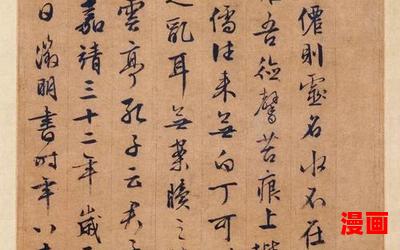 僊則靈名水不在
吾德馨苔痕上
儒往來無白丁可
亂耳無案牘之
雲亭孔子云君
嘉靖三十二年歲
日徵明書時年八
漫画